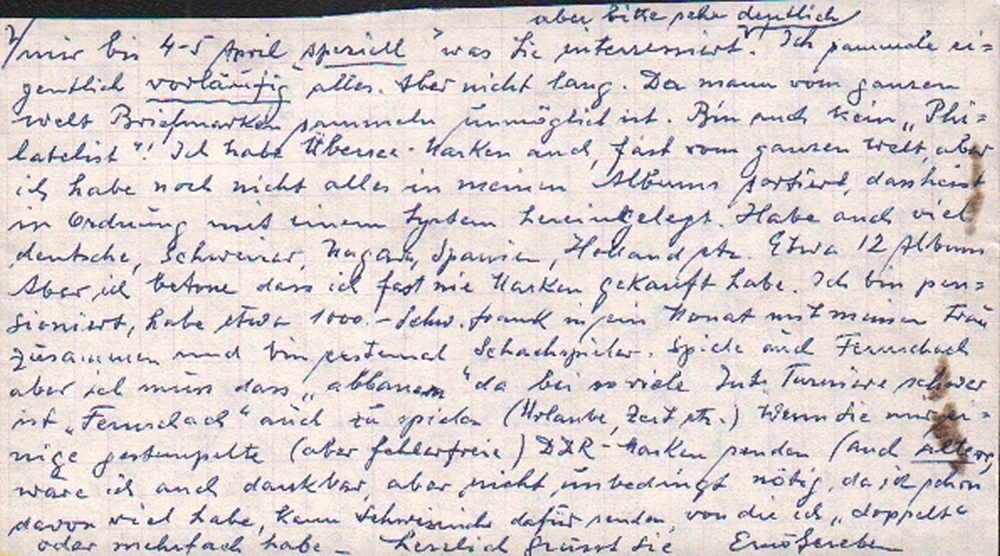 aber bitte sehr deutlich
mir bis 4-5 April speziell "was Sie interessiert". Ich sammle ei=
gentlich vorläufig alles. Aber nicht lang. Da mann vom ganzen
welt Briefmarken sammeln unmöglich ist. Bin auch kein „Phi=
latelist"! Ich habe Übersee-Marken auch, fast vom ganzen Welt, aber
ich habe noch nicht alles in meinen Albums sortiert, dass heisst
in Ordnung mit einem System hereingelegt. Habe auch viel
deutsche, Schweizer, Ungarn, Spanien, Holland etz. Etwa 12 Album
Aber ich betone dass ich fast nie Marken gekauft habe. Ich bin pen=
sioniert, habe etwa 1000.- Schw. frank in ein Monat mit meiner Frau
zusammen und bin erstemal Schachspieler. Spiele auch Fernschach
aber ich muss dass „abbauen" da bei so viele Int. Turniere schwer
ist „Fernschach" auch zu spielen (Urlaube, Zeit etz.) Wenn Sie mir ei=
nige gestempelte (aber fehlerfreie) DDR-Marken senden (auch ältere,
wäre ich auch dankbar, aber nicht unbedingt nötig, da ich schon
davon viel habe, kann Schweizerische dafür senden, von die ich „doppelt"
oder mehrfach habe - herzlich grüsst Sie Ernö Gereben